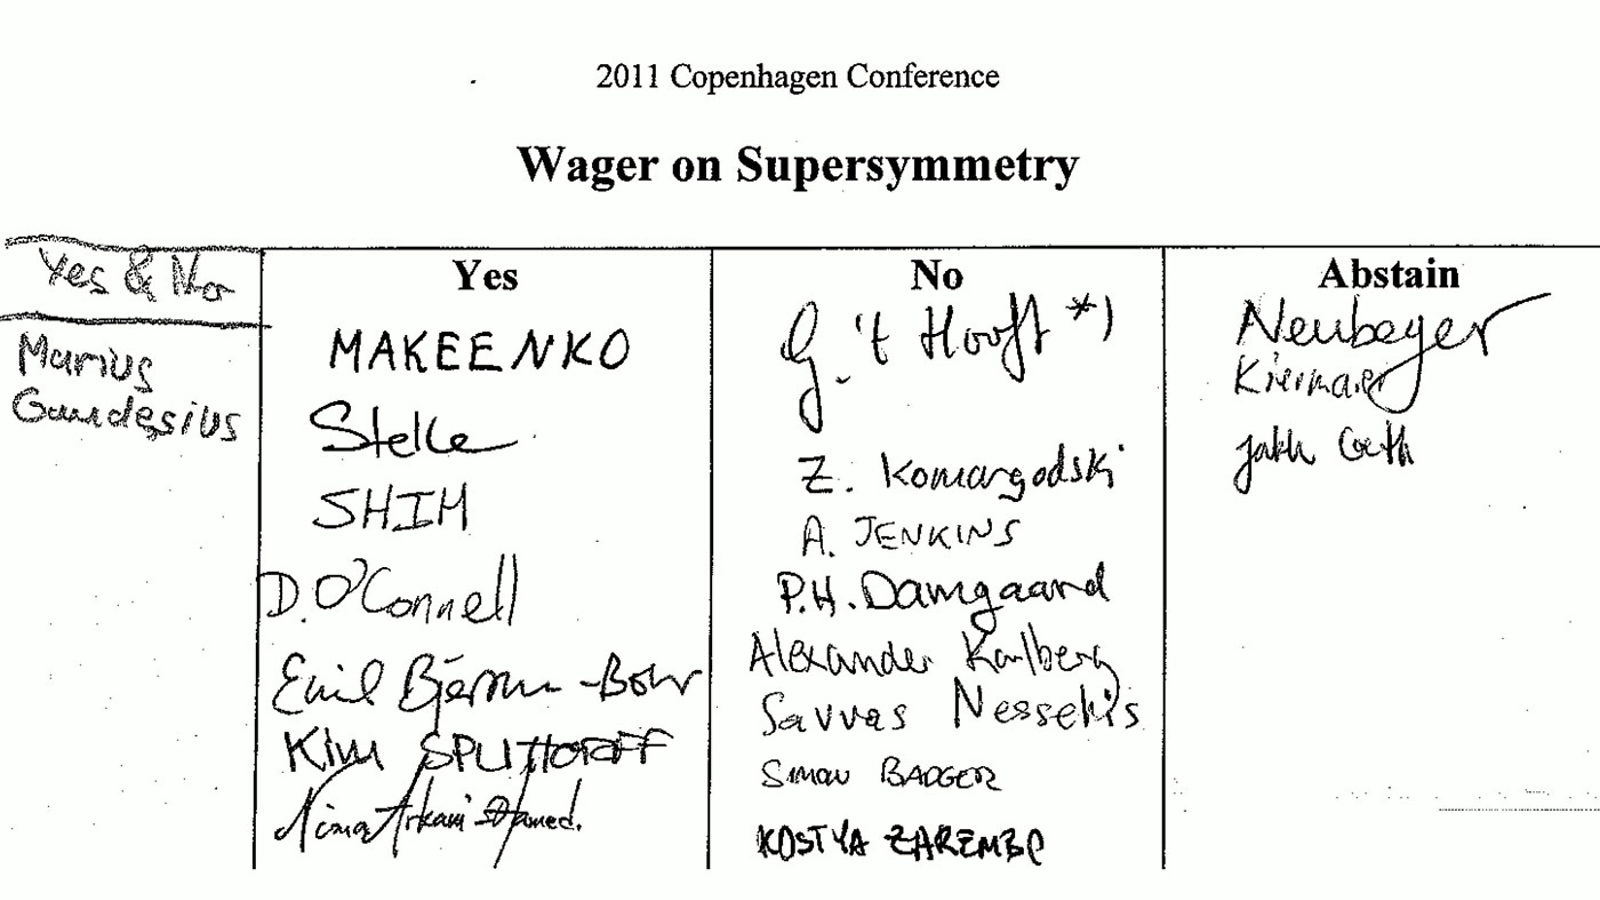 2011 Copenhagen Conference
Wager on Supersymmetry
Yes & No
Marius
Gaudesius
Yes
MAKEENKO
Stelle
SHIM
D. O'Connell
Emil Bjerrum-Bohr
Kim SPLITTORFF
Nima Arkani-Hamed.
No
G. 't Hooft *)
Z. Komargodski
A. JENKINS
P.H. Damgaard
Alexander Karlberg
Savvas
SIMON BADGER
KOSTYA ZAREMBO
Abstain
Neubeyer
Kiermaier